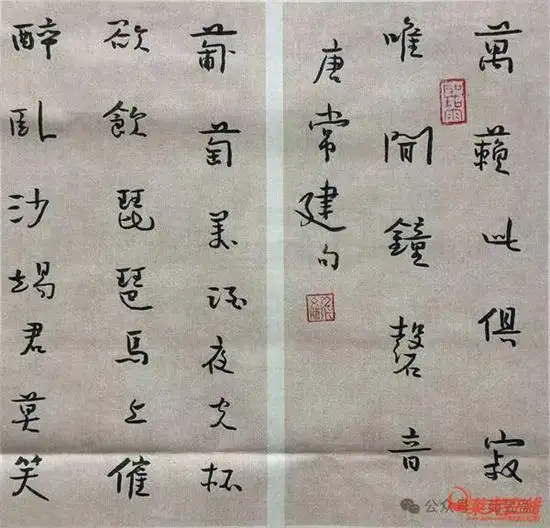 萬籟此俱寂
唯聞鐘磬音
唐常建句
葡萄美酒夜光杯
欲飲琵琶馬上催
醉臥沙場君莫笑
公众号